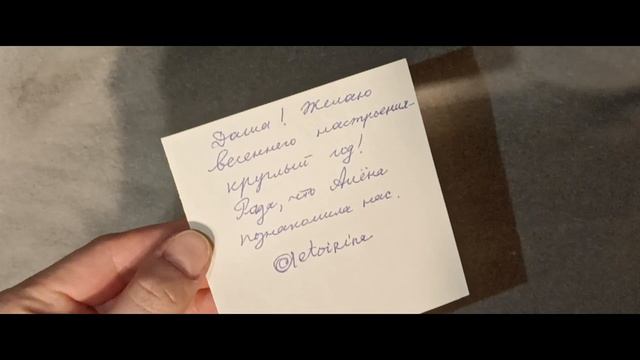 Даша! Желаю
весеннего настроения
круглый год!
Рада, что Алёна
познакомила нас.
@letoirina